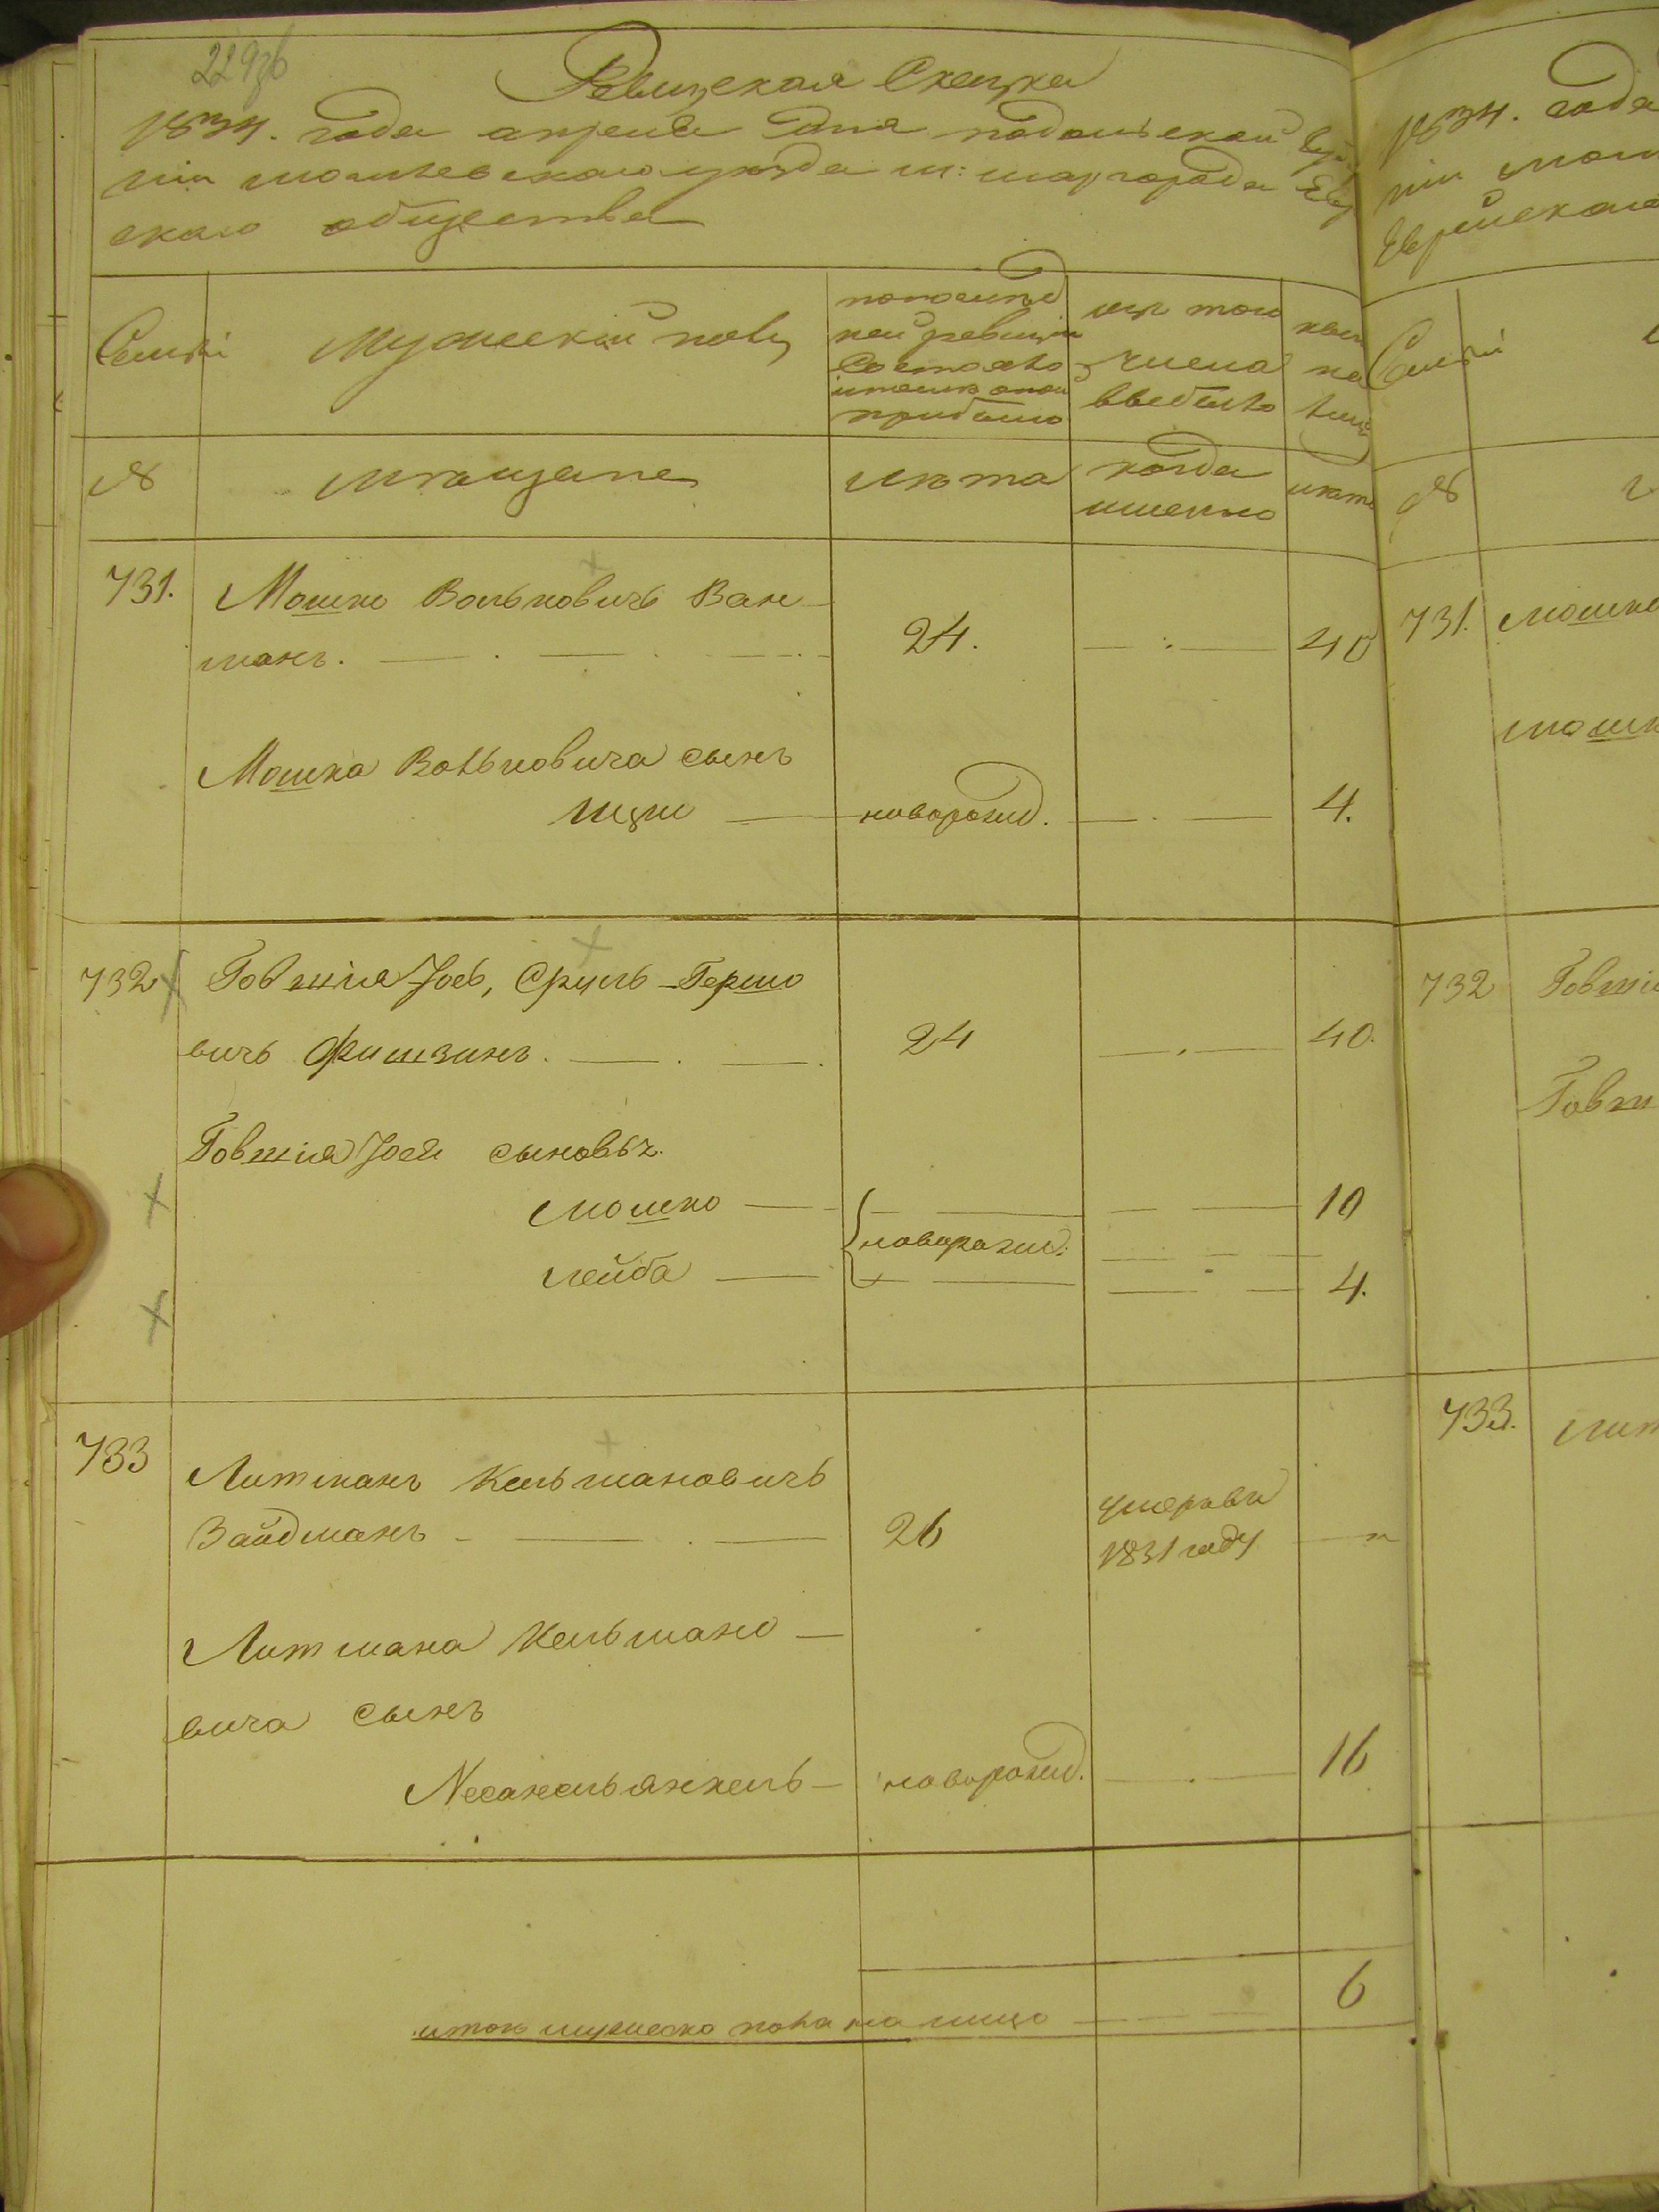 229об
Ревизская Сказка
1834. года апреля дня подольской Губер
нiи могилевского уезда м: шаргорода Евр
скаго общества
Семьи
Мужескiй полъ
по послед
ней ревизiи
Состояло
и после оной
прибыло
изъ того
числа
выбыло
ныне
на
лице
№
Мещане
Лета
когда
именно
лета
731.
Мошко Вольковичъ Вак
манъ.
24.
40
Мошка Вольковича сынъ
Ицик
новорожд.
4.
732
Говшiя Иось, Сруль Гершо
вичъ Фишзинъ.
24
40.
Говшiя Иося сыновья.
Мошко
10
новорожд:
Лейба
4.
733
Литманъ Кельмановичъ
Зайдманъ
26
умеръ въ
1831 году
Литмана Кельмано
вича сынъ
Янкель
новорожд.
16
итого мужеска пола на лицо
6
1834. года
нiи мог
Еврейскаго
Семьи
№
731.
Мошко
Мошк
732
Говшi
Говш
733.
Лит